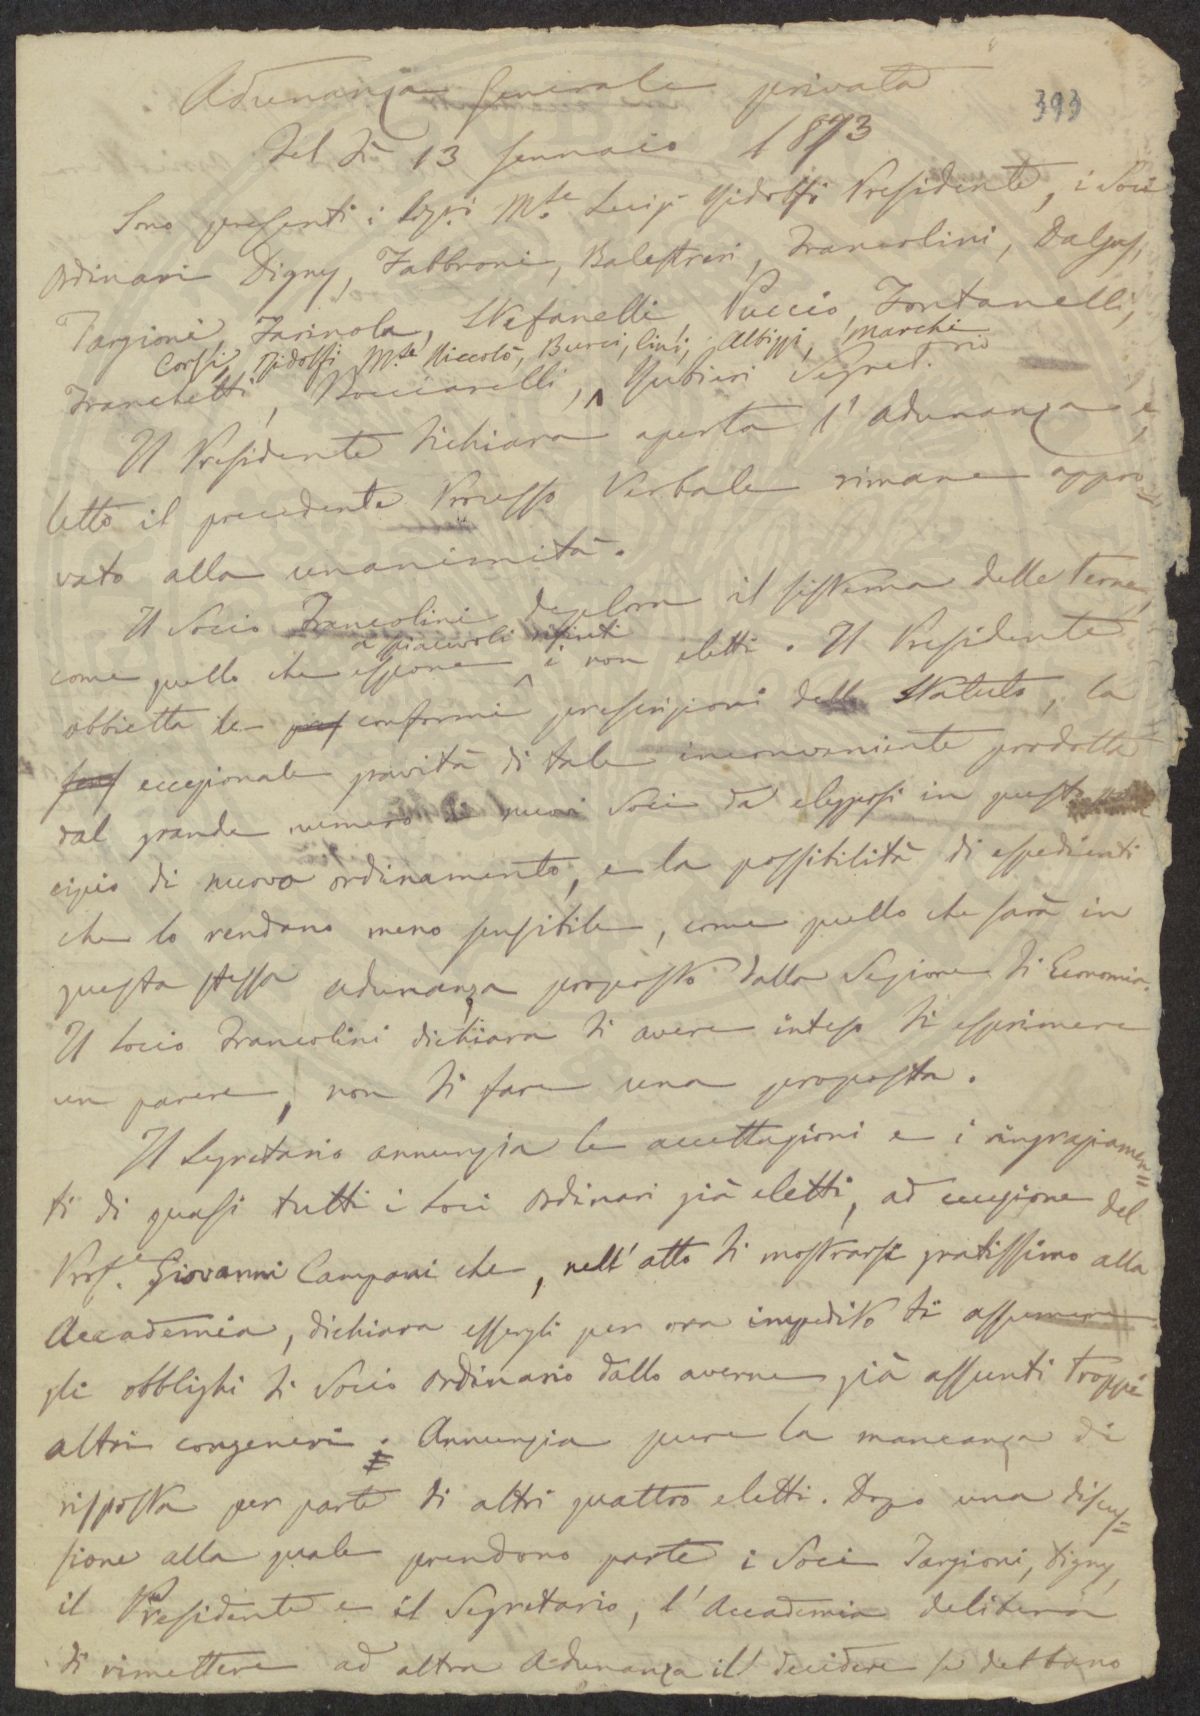 Adunanza Generale privata
393
Del dì 13 Gennaio 1873
Sono presenti i Sigri Mse Luigi Ridolfi Presidente, i Soci
Ordinari Digny, Fabbroni, Balestreri, Francolini, Dalgas,
Targioni, Farinola, Stefanelli, Puccio, Fontanelli,
Corsi, Ridolfi Mse Niccolò, Burci, Cini, Albizzi, Marchi
Franchetti, Bocciarelli, Rubieri Segretrio
Il Presidente dichiara aperta l'adunanza e,
letto il precedente Processo Verbale rimane appro=
vato alla unanimità.
Il Socio Francolini deplora il sistema delle terne,
a spiacevoli rifiuti
come quello che espone i non eletti. Il Presidente
obbietta le conformi prescrizioni dello Statuto, la
eccezionale gravità di tale inconveniente prodotta
dal grande numero di nuovi Soci da eleggersi in questo
cipio di nuovo ordinamento, e la possibilità di espedienti
che lo rendano meno sensibile, come quello che sarà in
questa stessa adunanza proposto dalla Sezione di Economia.
Il Socio Francolini dichiara di avere inteso di esprimere
un parere, non di fare una proposta.
Il Segretario annunzia le accettazioni e i ringraziamen=
ti di quasi tutti i Soci ordinari già eletti, ad eccezione del
Profe. Giovanni Campani che, nell'atto di mostrarsi gratissimo alla
Accademia, dichiara essergli per ora impedito di assumere
gli obblighi di Socio ordinario dallo averne già assunti troppi
altri congeneri. Annunzia pure la mancanza di
risposta per parte di altri quattro eletti. Dopo una discus=
sione alla quale prendono parte i Soci Targioni, Digny,
il Presidente e il Segretario, l'Accademia delibera
di rimettere ad altra Adunanza il decidere se debbano